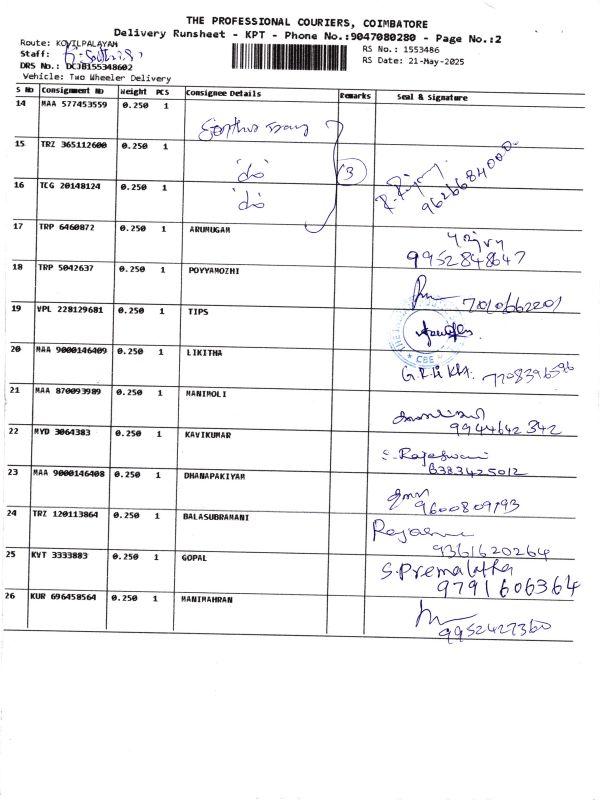 THE PROFESSIONAL COURIERS, COIMBATORE
Delivery Runsheet - KPT - Phone No.:9047080280 - Page No.:2
Route: KOVILPALAYAM
RS No.: 1553486
Staff:
RS Date: 21-May-2025
DRS No.: DCJB155348602
Vehicle: Two Wheeler Delivery
S No Consignment No Weight PCS Consignee Details Remarks Seal & Signature
14 MAA 577453559 0.250 1
15 TRZ 365112600 0.250 1 3
16 TCG 20148124 0.250 1 9626684000
17 TRP 6460872 0.250 1 ARUMUGAM
9952848647
18 TRP 5042637 0.250 1 POYYAMOZHI
7010662201
19 VPL 228129681 0.250 1 TIPS
CBE
20 MAA 9000146409 0.250 1 LIKITHA
7708396596
21 MAA 870093989 0.250 1 MANIMOLI
9944642342
22 MYD 3064383 0.250 1 KAVIKUMAR
Rajeswari
6383425012
23 MAA 9000146408 0.250 1 DHANAPAKIYAM
9600809193
24 TRZ 120113864 0.250 1 BALASUBRAMANI
9361620264
25 KVT 3333883 0.250 1 GOPAL
S.Premalatha
9791606364
26 KUR 696458564 0.250 1 MANIMAHRAN
9952427360